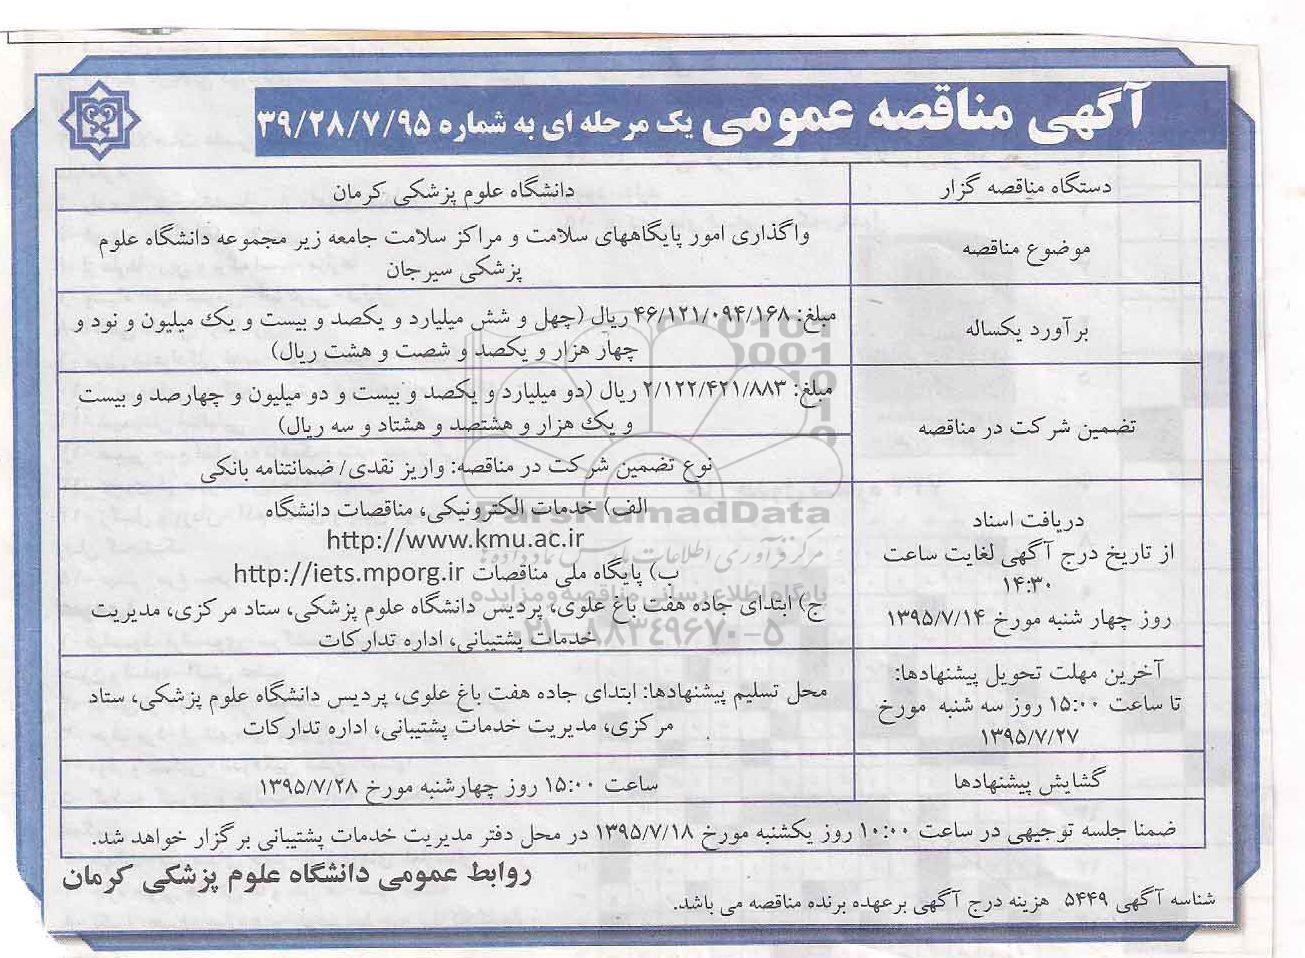 آگهی مناقصه عمومی یک مرحله ای به شماره ۳۹/۲۸/۷/۹۵
دستگاه مناقصه گزار
دانشگاه علوم پزشکی کرمان
موضوع مناقصه
واگذاری امور پایگاههای سلامت و مراکز سلامت جامعه زیر مجموعه دانشگاه علوم
پزشکی سیرجان
برآورد یکساله
مبلغ: ۴۶/۱۲۱/۰۹۴/۱۶۸ ریال (چهل و شش میلیارد و یکصد و بیست و یک میلیون و نود و
چهار هزار و یکصد و شصت و هشت ریال)
تضمین شرکت در مناقصه
مبلغ: ۲/۱۲۲/۴۲۱/۸۸۳ ریال (دو میلیارد و یکصد و بیست و دو میلیون و چهارصد و بیست
و یک هزار و هشتصد و هشتاد و سه ریال)
نوع تضمین شرکت در مناقصه: واریز نقدی/ ضمانتنامه بانکی
دریافت اسناد
از تاریخ درج آگهی لغایت ساعت
۱۴:۳۰
روز چهار شنبه مورخ ۱۳۹۵/۷/۱۴
الف) خدمات الکترونیکی، مناقصات دانشگاه
http://www.kmu.ac.ir
ب) پایگاه ملی مناقصات http://iets.mporg.ir
ج) ابتدای جاده هفت باغ علوی، پردیس دانشگاه علوم پزشکی، ستاد مرکزی، مدیریت
خدمات پشتیبانی، اداره تدارکات
آخرین مهلت تحویل پیشنهادها:
تا ساعت ۱۵:۰۰ روز سه شنبه مورخ
۱۳۹۵/۷/۲۷
محل تسلیم پیشنهادها: ابتدای جاده هفت باغ علوی، پردیس دانشگاه علوم پزشکی، ستاد
مرکزی، مدیریت خدمات پشتیبانی، اداره تدارکات
گشایش پیشنهادها
ساعت ۱۵:۰۰ روز چهارشنبه مورخ ۱۳۹۵/۷/۲۸
ضمنا جلسه توجیهی در ساعت ۱۰:۰۰ روز یکشنبه مورخ ۱۳۹۵/۷/۱۸ در محل دفتر مدیریت خدمات پشتیبانی برگزار خواهد شد.
روابط عمومی دانشگاه علوم پزشکی کرمان
شناسه آگهی ۵۴۴۹ هزینه درج آگهی برعهده برنده مناقصه می باشد.
ParsNamadData
مرکز فرآوری اطلاعات پارس نماد داده ها
پایگاه اطلاع رسانی مناقصه و مزایده
۰۲۱-۸۸۳۴۹۶۷۰-۵